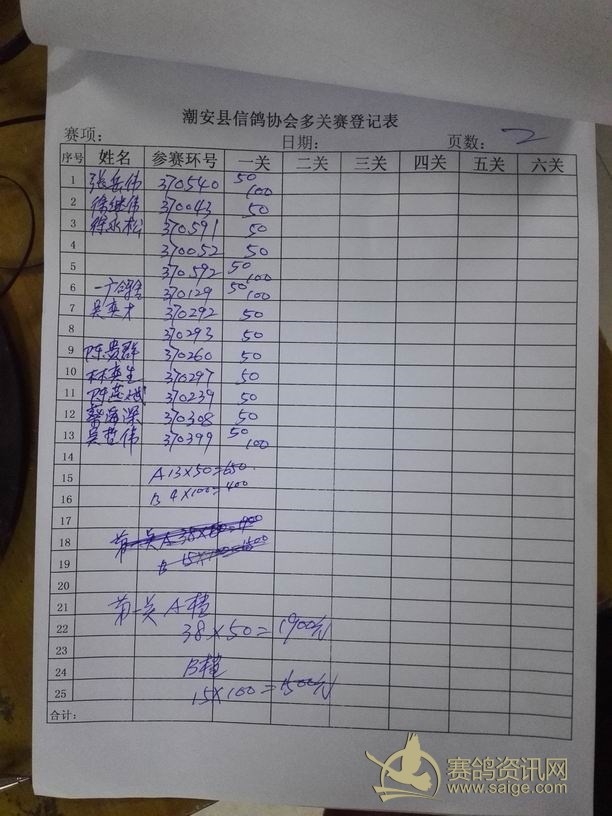 潮安县信鸽协会多关赛登记表
赛项： 日期： 页数： 2
序号 姓名 参赛环号 一关 二关 三关 四关 五关 六关
1 张岳伟 370540 50 100
2 徐继伟 370043 50
3 徐永松 370591 50
4 370052 50
5 370592 50 100
6 370129 50 100
7 吴奕才 370292 50
8 370293 50
9 陈贵群 370260 50
10 林奕生 370297 50
11 陈燕 370239 50
12 蔡海深 370308 50
13 吴哲伟 370399 50 100
14
15 A 13×50=650
16 B 4×100=400
17
18
19
20
21 第一关 A
22 38×50=1900
23
24 B
25 15×100=1500
合计:
赛鸽资讯网
www.saige.com